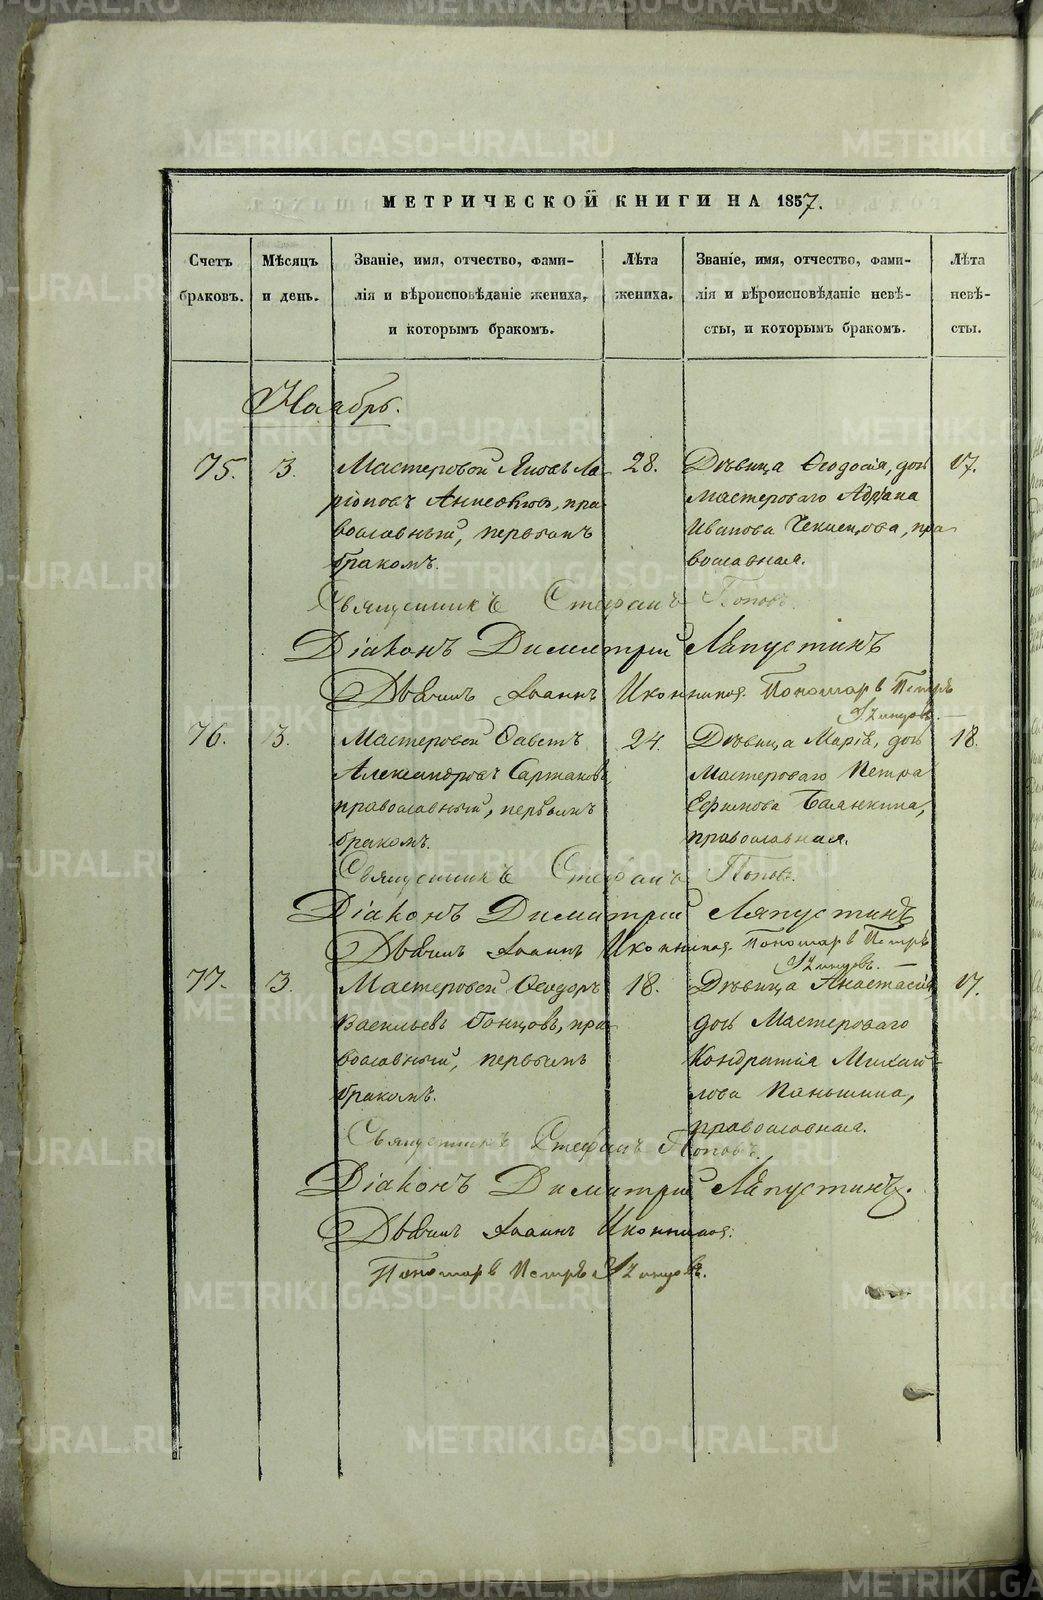 МЕТРИЧЕСКОЙ КНИГИ НА 1857.
Счетъ
браковъ.
Мѣсяцъ
и день.
Званіе, имя, отчество, фами-
лія и вѣроисповѣданіе жениха,
и которымъ бракомъ.
Лѣта
жениха.
Званіе, имя, отчество, фами-
лія и вѣроисповѣданіе невѣ-
сты, и которымъ бракомъ.
Лѣта
невѣ-
сты.
Ноябрь.
75. 3.
Мастеровой Яковъ Ла-
ріоновъ пра-
вославный, первымъ
бракомъ.
28.
Дѣвица Ѳеодосія, дочь
Мастероваго Адріана
Иванова пра-
вославная.
17.
Священникъ Стефанъ Поповъ.
Діаконъ Димитрий Ляпустинъ
Дьячекъ Іоаннъ Пономарь Петръ
76. 3.
Мастеровой Ѳавстъ
Александровъ
православный, первымъ
бракомъ.
24.
Дѣвица Марія, дочь
Мастероваго Петра
Ефимова Балянкина,
православная.
18.
Священникъ Стефанъ Поповъ.
Діаконъ Димитрий Ляпустинъ
Дьячекъ Іоаннъ Пономарь Петръ
77. 3.
Мастеровой Ѳеодоръ
Васильевъ Гонцовъ, пра-
вославный, первымъ
бракомъ.
18.
Дѣвица Анастасія,
дочь Мастероваго
Кондратія Михай-
лова Паньшина,
православная.
17.
Священникъ Стефанъ Поповъ.
Діаконъ Димитрий Ляпустинъ.
Дьячекъ Іоаннъ
Пономарь Петръ
METRIKI.GASO-URAL.RU